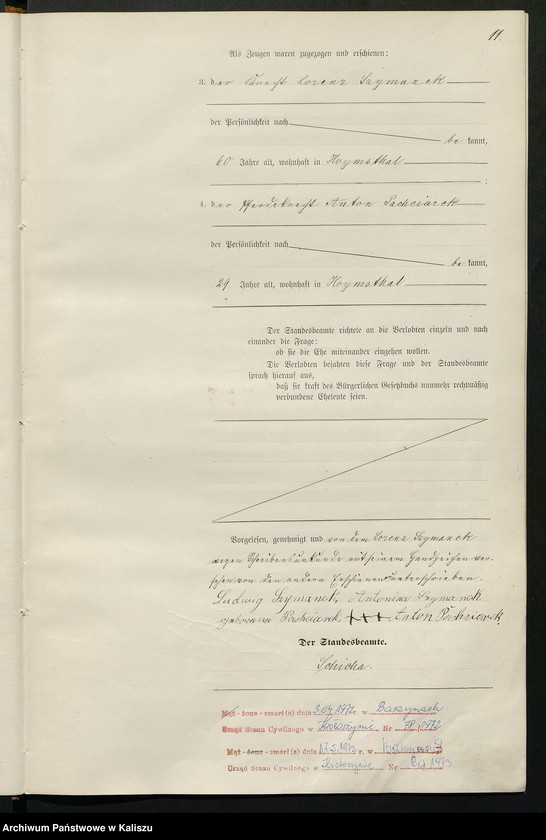 11.
Als Zeugen waren zugezogen und erschienen:
3. der Knecht Lorenz Szymanek
der Persönlichkeit nach
be kannt,
60 Jahre alt, wohnhaft in Hoymsthal
;
4. der Pferdeknecht Anton Pachciarek
der Persönlichkeit nach
be kannt,
29 Jahre alt, wohnhaft in Hoymsthal
Der Standesbeamte richtete an die Verlobten einzeln und nach
einander die Frage:
ob sie die Ehe miteinander eingehen wollen.
Die Verlobten bejahten diese Frage und der Standesbeamte
sprach hierauf aus,
daß sie kraft des Bürgerlichen Gesetzbuchs nunmehr rechtmäßig
verbundene Eheleute seien.
Vorgelesen, genehmigt und von dem Lorenz Szymanek
wegen Schreibensunkunde mit seinem Handzeichen ver-
sehen von den anderen Erschienenen unterschrieben.
Ludwig Szymanek, Antonina Szymanek
geborene Pachciarek, +++ Anton Pachciarek
Der Standesbeamte.
Schicha.
Mąż - żona - zmarł (a) dnia 9.04.1972 r. w
Urząd Stanu Cywilnego w Krotoszynie Nr 78/1972
Mąż - żona - zmarł (a) dnia 17.5.1973 r. w
Urząd Stanu Cywilnego w Krotoszynie Nr 89/1973
Archiwum Państwowe w Kaliszu